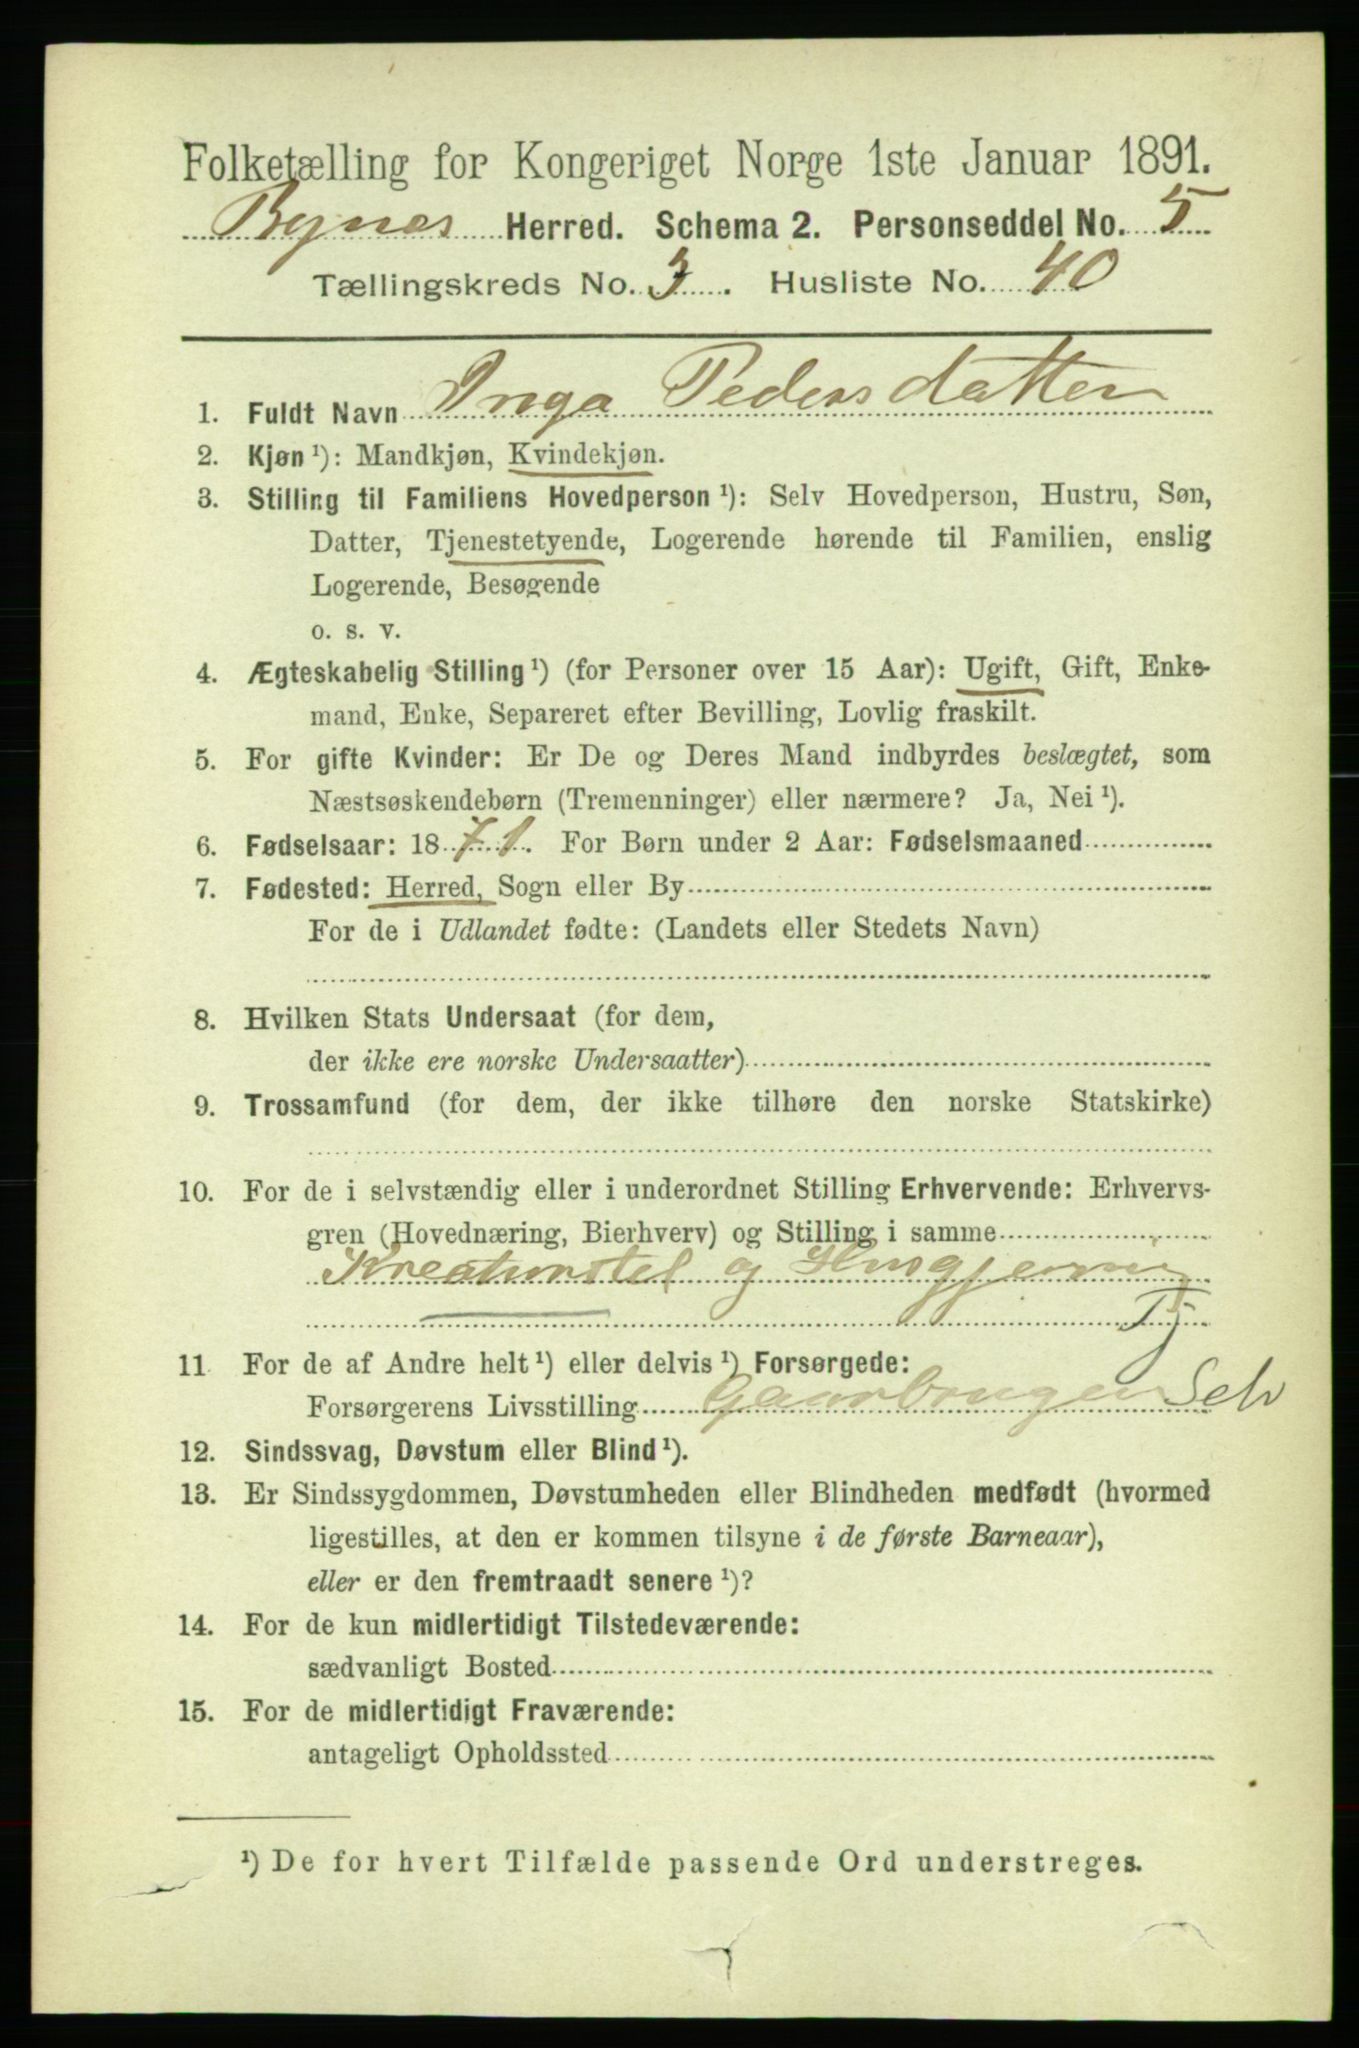 Folketælling for Kongeriget Norge 1ste Januar 1891.
Bynes Herred. Schema 2. Personseddel No. 5
Tællingskreds No. 3. Husliste No. 40
1. Fuldt Navn Inga Pedersdatter
2. Kjøn¹): Mandkjøn, Kvindekjøn.
3. Stilling til Familiens Hovedperson¹): Selv Hovedperson, Hustru, Søn,
Datter, Tjenestetyende, Logerende hørende til Familien, enslig
Logerende, Besøgende
o. s. v.
4. Ægteskabelig Stilling¹) (for Personer over 15 Aar): Ugift, Gift, Enke-
mand, Enke, Separeret efter Bevilling, Lovlig fraskilt.
5. For gifte Kvinder: Er De og Deres Mand indbyrdes beslægtet, som
Næstsøskendebørn (Tremenninger) eller nærmere? Ja, Nei¹).
6. Fødselsaar: 1871. For Børn under 2 Aar: Fødselsmaaned
7. Fødested: Herred, Sogn eller By
For de i Udlandet fødte: (Landets eller Stedets Navn)
8. Hvilken Stats Undersaat (for dem,
der ikke ere norske Undersaatter)
9. Trossamfund (for dem, der ikke tilhøre den norske Statskirke)
10. For de i selvstændig eller i underordnet Stilling Erhvervende: Erhvervs-
gren (Hovednæring, Bierhverv) og Stilling i samme
Kreaturstel og Husgjerning
Tj
11 For de af Andre helt¹) eller delvis¹) Forsørgede:
Forsørgerens Livsstilling Gaarbruger Selv
12. Sindssvag, Døvstum eller Blind¹).
13. Er Sindssygdommen, Døvstumheden eller Blindheden medfødt (hvormed
ligestilles, at den er kommen tilsyne i de første Barneaar),
eller er den fremtraadt senere¹)?
14. For de kun midlertidigt Tilstedeværende:
sædvanligt Bosted
15. For de midlertidigt Fraværende:
antageligt Opholdssted
¹) De for hvert Tilfælde passende Ord understreges.